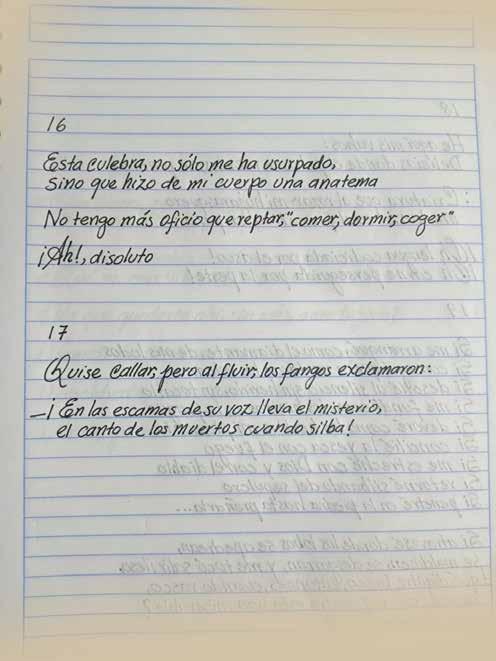 16
Esta culebra, no sólo me ha usurpado,
sino que hizo de mi cuerpo una anatema
No tengo más oficio que reptar, "comer, dormir, coger"
¡Ah!, disoluto
17
Quise callar, pero al fluir, los fangos exclamaron:
—¡En las escamas de su voz lleva el misterio,
el canto de los muertos cuando silba!